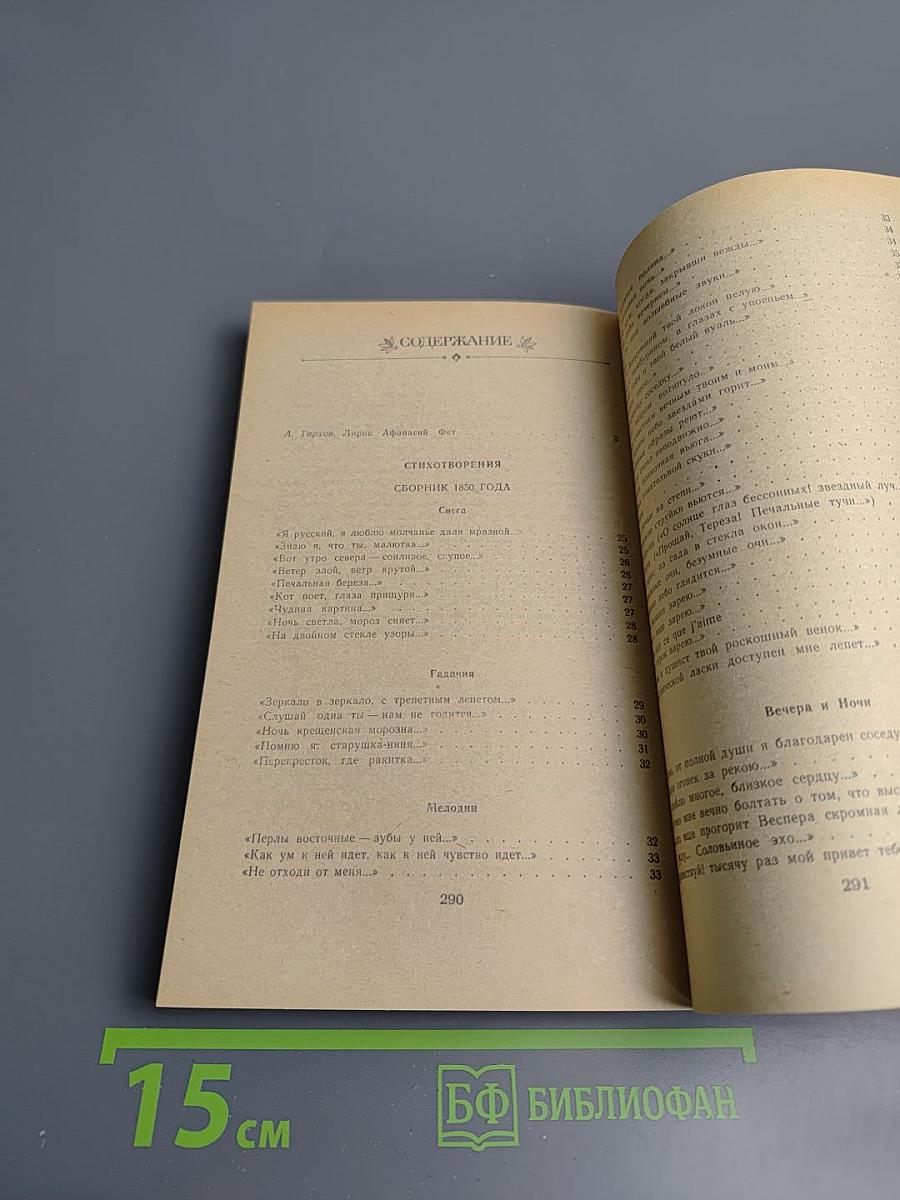 СОДЕРЖАНИЕ
А. Тархов. Лирик Афанасий Фет . . . 3
СТИХОТВОРЕНИЯ
СБОРНИК 1850 ГОДА
Снега
«Я русский, я люблю молчанье дали мразной...» 25
«Знаю я, что ты, малютка...» 25
«Вот утро севера — сонливое, скупое...» 26
«Ветер злой, ветр крутой...» 26
«Печальная береза...» 27
«Кот поет, глаза прищуря...» 27
«Чудная картина...» 27
«Ночь светла, мороз сияет...» 28
«На двойном стекле узоры...» 28
Гадания
«Зеркало в зеркало, с трепетным лепетом...» 29
«Слушай одна ты — нам не годится...» 30
«Ночь крещенская морозна...» 30
«Помню я: старушка-няня...» 31
«Перекресток, где ракитка...» 32
Мелодии
«Перлы восточные — зубы у ней...» 32
«Как ум к ней идет, как к ней чувство идет...» 33
«Не отходи от меня...» 33
290
поляна...» 33
ночь...» 34
когда, закрывши вежды...» 34
вечернем...» 35
волшебные звуки...»
твой локон целую...»
в глазах с упоеньем...»
и твой белый вуаль...»
соседку...»
потянуло...»
вечным твоим и моим...»
небо звездами горит...»
образы реют...»
неподвижно...»
полночная вьюга...»
скуки...»
на степи...»
струйки вьются...»
(«О солнце глаз бессонных! звездный луч...
(«Прощай, Тереза! Печальные тучи...»)
из сада в стекла окон...»
очи, безумные очи...»
небо глядится...»
зарею...»
зарею...»
ce que j'aime
зарею...»
душист твой роскошный венок...»
ласки доступен мне лепет...»
Вечера и Ночи
от полной души я благодарен соседу
огонек за рекою...»
многое, близкое сердцу...»
мне вечно болтать о том, что выс
еще прогорит Веспера скромная
Соловьиное эхо...»
тысячу раз мой привет тебе
291
15 см
БФ БИБЛИОФАН